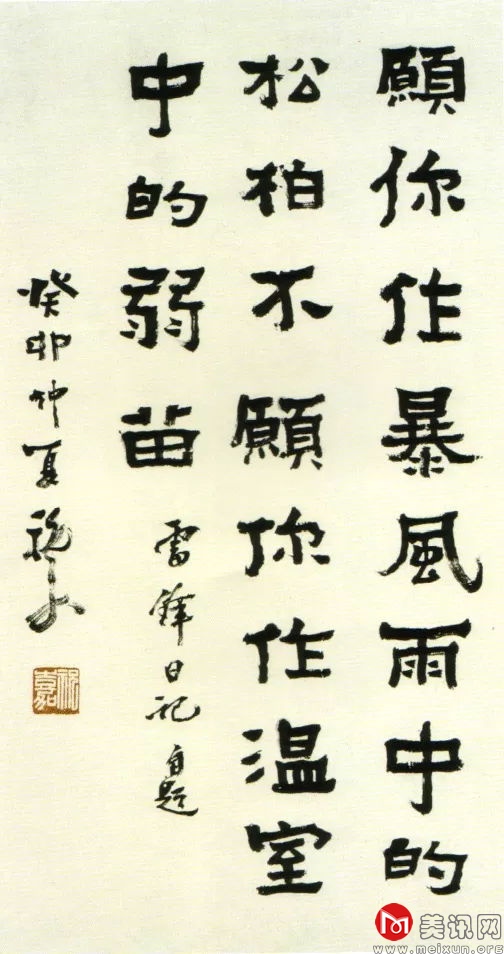 願你作暴風雨中的
松柏不願你作温室
中的弱苗
雷鋒日記自題
癸卯仲夏
祝嘉
美讯网
www.meixun.org